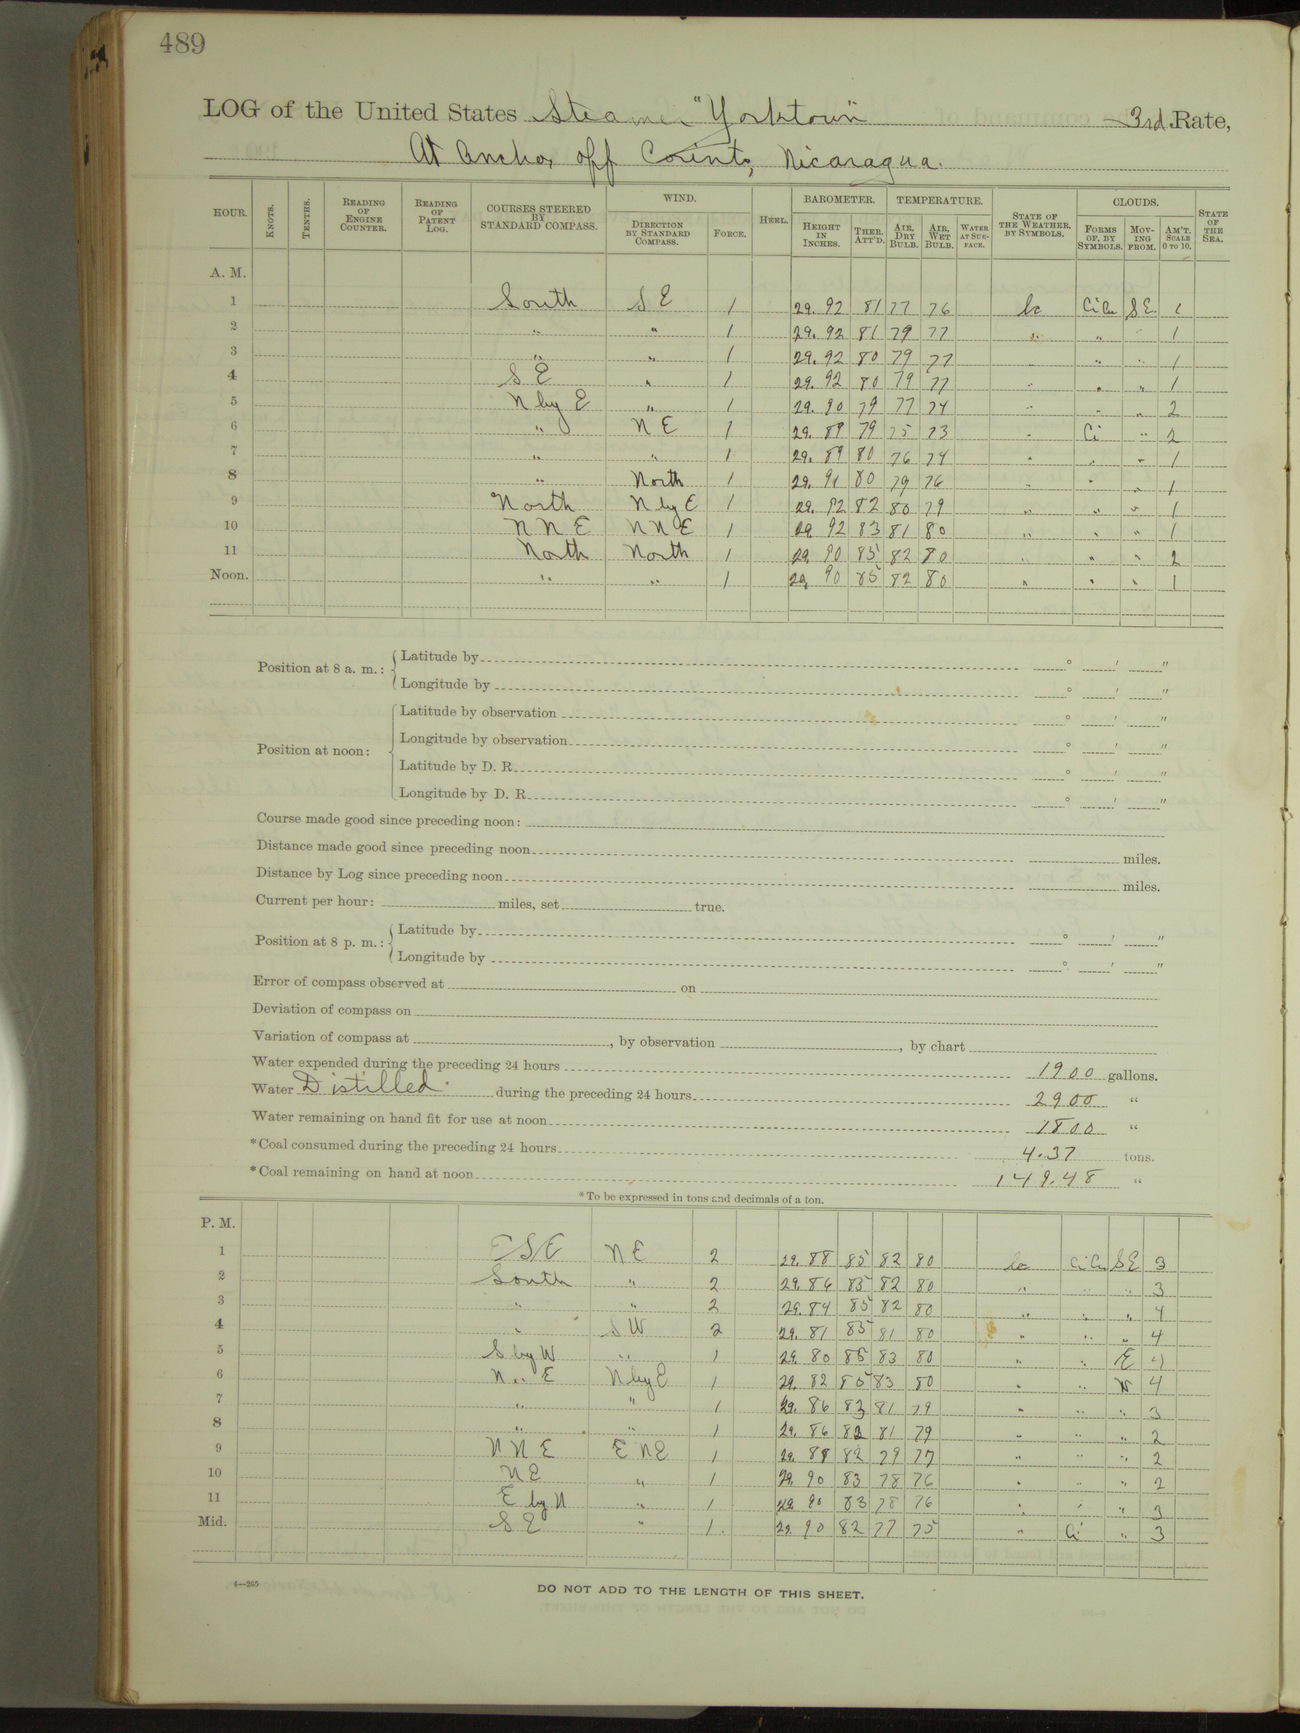 489
LOG of the United States Steamer "Yorktown" 3rd Rate,
At anchor off Corinto, Nicaragua.
HOUR. KNOTS. TENTHS. READING OF ENGINE COUNTER. READING OF PATENT LOG. COURSES STEERED BY STANDARD COMPASS. WIND. DIRECTION BY STANDARD COMPASS. FORCE. HEEL. BAROMETER. HEIGHT IN INCHES. THER. ATT'D. TEMPERATURE. AIR, DRY BULB. AIR, WET BULB. WATER AT SURFACE. STATE OF THE WEATHER, BY SYMBOLS. CLOUDS. FORMS OF, BY SYMBOLS. MOVING FROM. AM'T. SCALE 0 TO 10. STATE OF THE SEA.
A. M.
1 South S E 1 29.92 81 77 76 bc CiCu SE 1
2 " " 1 29.92 81 79 77 " " " 1
3 " " 1 29.92 80 79 77 " " 1
4 S E " 1 29.92 80 79 77 " " " 1
5 N by E " 1 29.90 79 77 74 " " " 2
6 " N E 1 29.89 79 75 73 " Ci " 2
7 " " 1 29.89 80 76 74 " " " 1
8 " North 1 29.91 80 79 76 " " " 1
9 North N by E 1 29.92 82 80 79 " " " 1
10 N N E N N E 1 29.92 83 81 80 " " " 1
11 North North 1 29.90 85 82 80 " " " 2
Noon. " " 1 29.90 85 82 80 " " " 1
Position at 8 a. m.: Latitude by ° ' "
Longitude by ° ' "
Position at noon: Latitude by observation ° ' "
Longitude by observation ° ' "
Latitude by D. R. ° ' "
Longitude by D. R. ° ' "
Course made good since preceding noon:
Distance made good since preceding noon miles.
Distance by Log since preceding noon miles.
Current per hour: miles, set true.
Position at 8 p. m.: Latitude by ° ' "
Longitude by ° ' "
Error of compass observed at on
Deviation of compass on
Variation of compass at , by observation , by chart
Water expended during the preceding 24 hours 1900 gallons.
Water Distilled during the preceding 24 hours 2900 "
Water remaining on hand fit for use at noon 1800 "
*Coal consumed during the preceding 24 hours 4.37 tons.
*Coal remaining on hand at noon 149.48 "
*To be expressed in tons and decimals of a ton.
P. M.
1 ESE N E 2 29.88 85 82 80 bc CiCu SE 3
2 South " 2 29.86 85 82 80 " " " 3
3 " " 2 29.84 85 82 80 " " " 4
4 " S W 2 29.81 85 81 80 " " " 4
5 S by W " 1 29.80 85 83 80 " " E 4
6 N " E N by E 1 29.82 85 83 80 " " N 4
7 " " 1 29.86 83 81 79 " " " 3
8 " " 1 29.86 82 81 79 " " " 2
9 N N E E N E 1 29.89 82 79 77 " " " 2
10 N E " 1 29.90 83 78 76 " " " 2
11 E by N " 1 29.90 83 78 76 " " " 3
Mid. S E " 1. 29.90 82 77 75 " Ci " 3
4—265
DO NOT ADD TO THE LENGTH OF THIS SHEET.